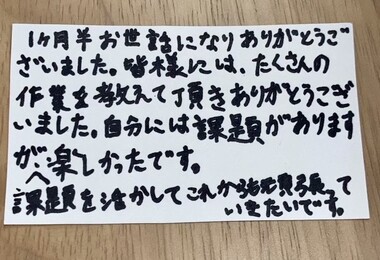 1ヶ月半お世話になりありがとうご
ざいました。皆様には、たくさんの
作業を教えて頂きありがとうござ
いました。自分には課題があります
が、楽しかったです。
課題を活かしてこれからも頑張って
いきたいです。